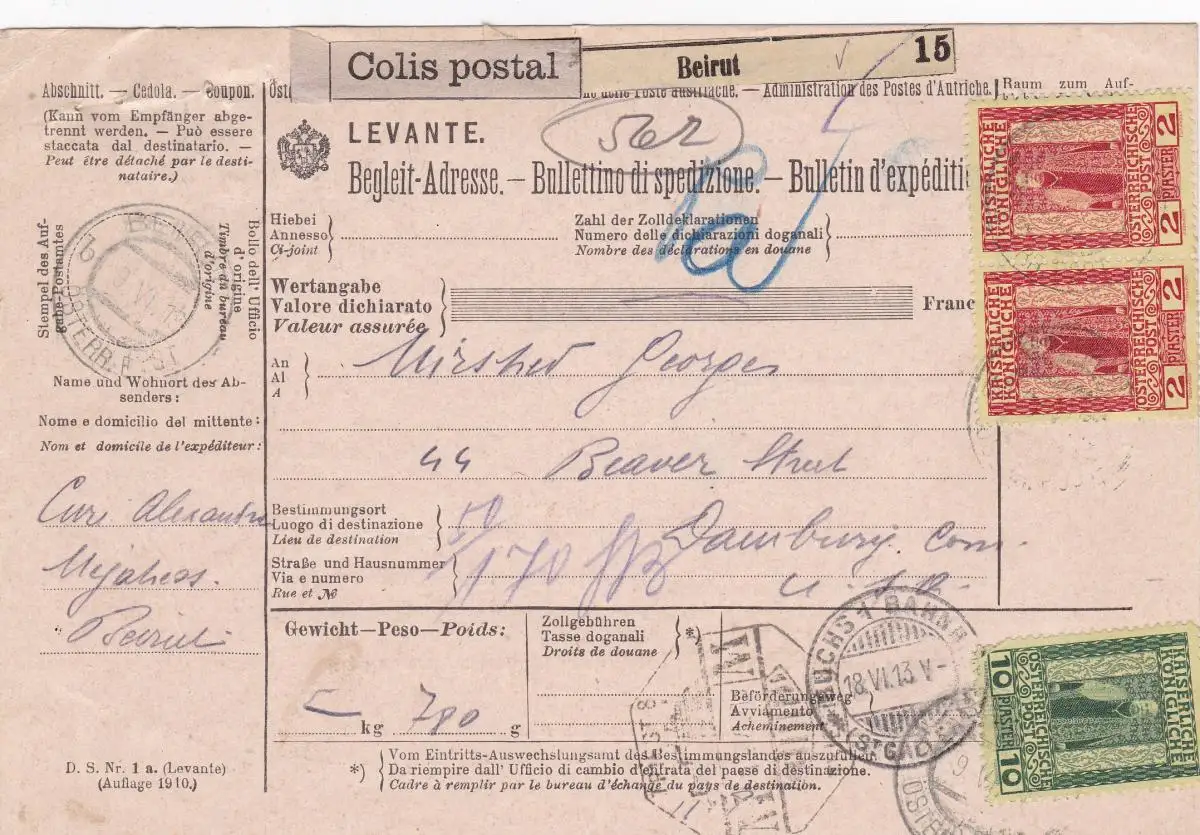 Colis postal
Beirut 15
Abschnitt. — Cedola. — Coupon.
(Kann vom Empfänger abge-
trennt werden. — Può essere
staccata dal destinatario. —
Peut être détaché par le desti-
nataire.)
Administration des Postes d'Autriche.
Raum zum Auf-
562
LEVANTE.
Begleit-Adresse. — Bullettino di spedizione. — Bulletin d'expéditi
Hiebei
Annesso
Ci-joint
Zahl der Zolldeklarationen
Numero delle dichiarazioni doganali
Nombre des déclarations en douane
Stempel des Auf-
gabe-Postamtes
Bollo dell' Ufficio
d'origine
Timbre du bureau
d'origine
ÖSTERR. POST
Wertangabe
Valore dichiarato
Valeur assurée
Franc
An
Al
A
Georges
44 Beaver Street
Name und Wohnort des Ab-
senders:
Nome e domicilio del mittente:
Nom et domicile de l'expéditeur:
Beirut
Bestimmungsort
Luogo di destinazione
Lieu de destination
Danbury. Conn.
Straße und Hausnummer
Via e numero
Rue et №
170
U. S. A.
Gewicht—Peso—Poids:
kg 780 g
Zollgebühren
Tasse doganali
Droits de douane
*)
Beförderungsweg
Avviamento
Acheminement
BUCHS 1 BAHNH
18.VI.13 V-
*) Vom Eintritts-Auswechslungsamt des Bestimmungslandes auszufüllen.
Da riempire dall' Ufficio di cambio d'entrata del paese di destinazione.
Cadre à remplir par le bureau d'échange du pays de destination.
D. S. Nr. 1 a. (Levante)
(Auflage 1910.)
KAISERLICHE KÖNIGLICHE ÖSTERREICHISCHE POST 2 PIASTER 2
KAISERLICHE KÖNIGLICHE ÖSTERREICHISCHE POST 2 PIASTER 2
KAISERLICHE KÖNIGLICHE ÖSTERREICHISCHE POST 10 PIASTER 10